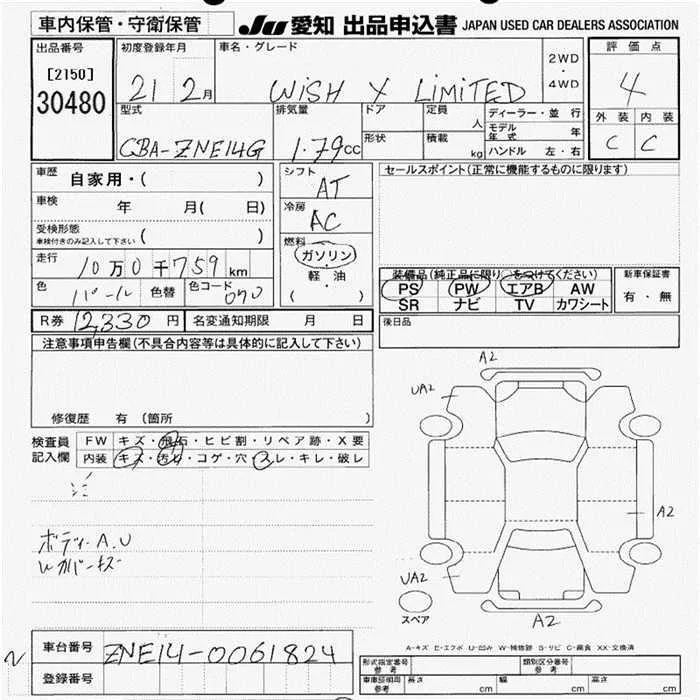 車内保管・守衛保管
JU 愛知 出品申込書 JAPAN USED CAR DEALERS ASSOCIATION
出品番号
[2150]
30480
初度登録年月
21 2月
車名・グレード
WiSH X LiMiTED
2WD
・
4WD
評価点
4
外装 内装
C C
型式
CBA-ZNE14G
排気量
1.79cc
ドア
形状
定員
人
積載
kg
ディーラー・並行
モデル年式 年
ハンドル 左・右
車歴
自家用・( )
車検 年 月( 日)
受検形態
車検付きのみ記入して下さい ( )
走行
10万0千759km
色 パール 色替 色コード 070
シフト
AT
冷房
AC
燃料
ガソリン
・
軽・油
( )
セールスポイント(正常に機能するものに限ります)
装備品(純正品に限り○をつけてください)
PS PW エアB AW
SR ナビ TV カワシート
新車保証書
有・無
後日品
R券 12,330円 名変通知期限 月 日
注意事項申告欄(不具合内容等は具体的に記入して下さい)
修復歴 有(箇所 )
検査員
記入欄
FW キズ・飛石・ヒビ割・リペア跡・X要
内装 キズ・汚れ・コゲ・穴・スレ・キレ・破レ
ボディーA.U
A2
UA2
A2
UA2
A2
スペア
A-キズ E-エクボ U-凹み W-補修跡 S-サビ C-腐食 XX-交換済
車台番号 ZNE14-0061824
登録番号
型式指定番号
参考
類別区分番号
参考
車両証明用
参考
長さ cm 幅 cm 高さ cm